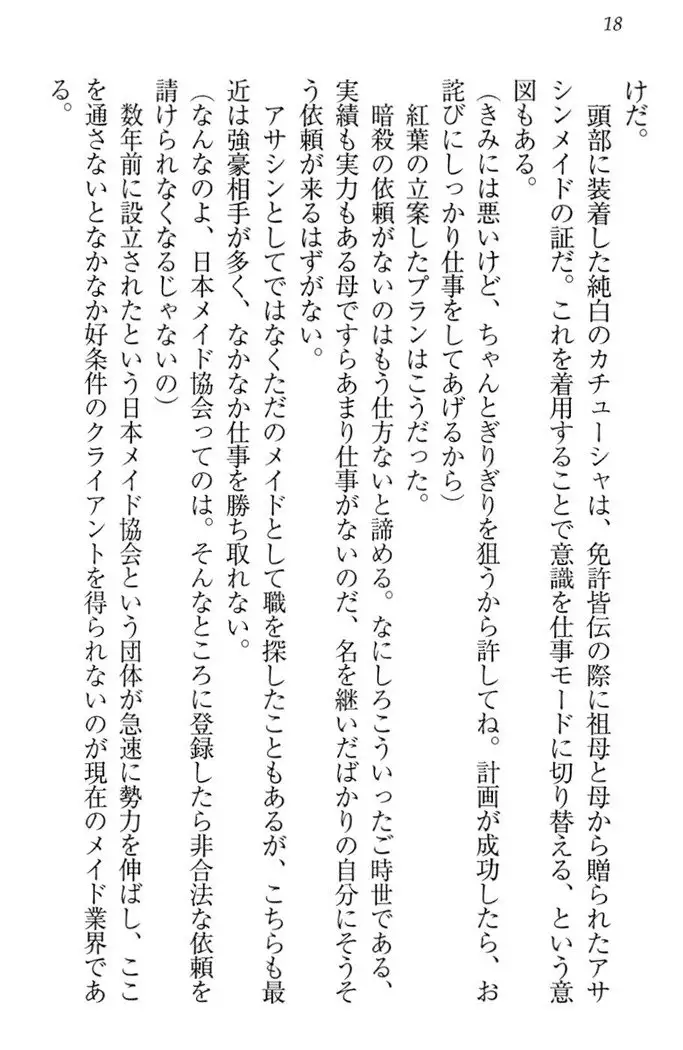 18
けだ。
　頭部に装着した純白のカチューシャは、免許皆伝の際に祖母と母から贈られたアサ
シンメイドの証だ。これを着用することで意識を仕事モードに切り替える、という意
図もある。
（きみには悪いけど、ちゃんとぎりぎりを狙うから許してね。計画が成功したら、お
詫びにしっかり仕事をしてあげるから）
　紅葉の立案したプランはこうだった。
　暗殺の依頼がないのはもう仕方ないと諦める。なにしろこういったご時世である、
実績も実力もある母ですらあまり仕事がないのだ、名を継いだばかりの自分にそうそ
う依頼が来るはずがない。
　アサシンとしてではなくただのメイドとして職を探したこともあるが、こちらも最
近は強豪相手が多く、なかなか仕事を勝ち取れない。
（なんなのよ、日本メイド協会ってのは。そんなところに登録したら非合法な依頼を
請けられなくなるじゃないの）
　数年前に設立されたという日本メイド協会という団体が急速に勢力を伸ばし、ここ
を通さないとなかなか好条件のクライアントを得られないのが現在のメイド業界であ
る。